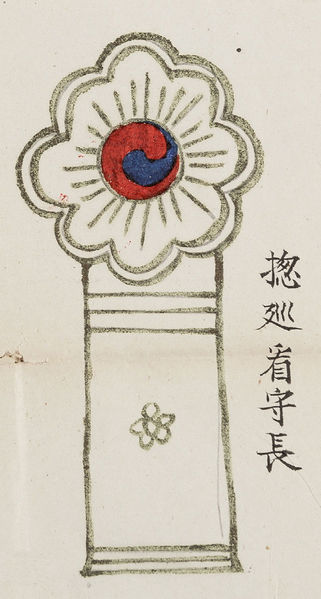 摠廵看守長